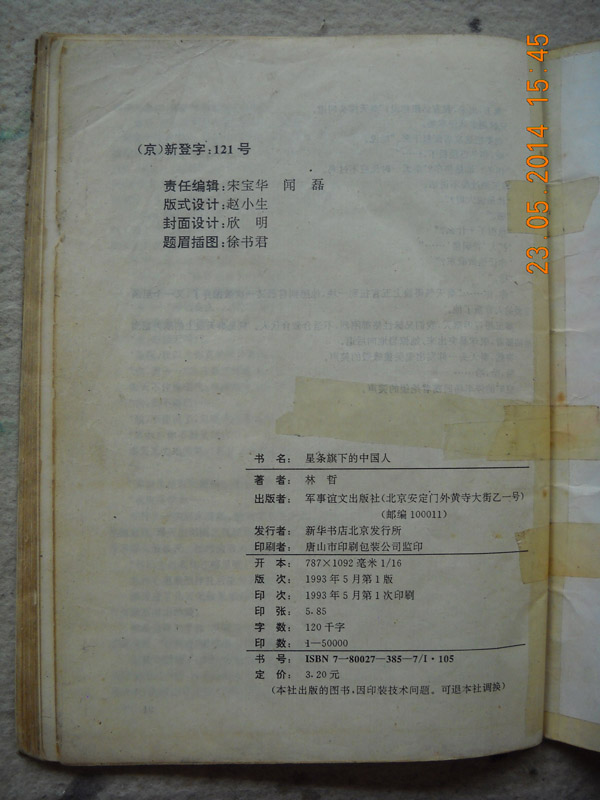 (京)新登字:121号
责任编辑:宋宝华 闻 磊
版式设计:赵小生
封面设计:欣 明
题眉插图:徐书君
书 名: 星条旗下的中国人
著 者: 林 哲
出版者: 军事谊文出版社(北京安定门外黄寺大街乙一号)
(邮编100011)
发行者: 新华书店北京发行所
印刷者: 唐山市印刷包装公司监印
开 本: 787×1092毫米1/16
版 次: 1993年5月第1版
印 次: 1993年5月第1次印刷
印 张: 5.85
字 数: 120千字
印 数: 1—50000
书 号: ISBN 7—80027—385—7/I·105
定 价: 3.20元
(本社出版的图书,因印装技术问题。可退本社调换)
23.05.2014 15:45